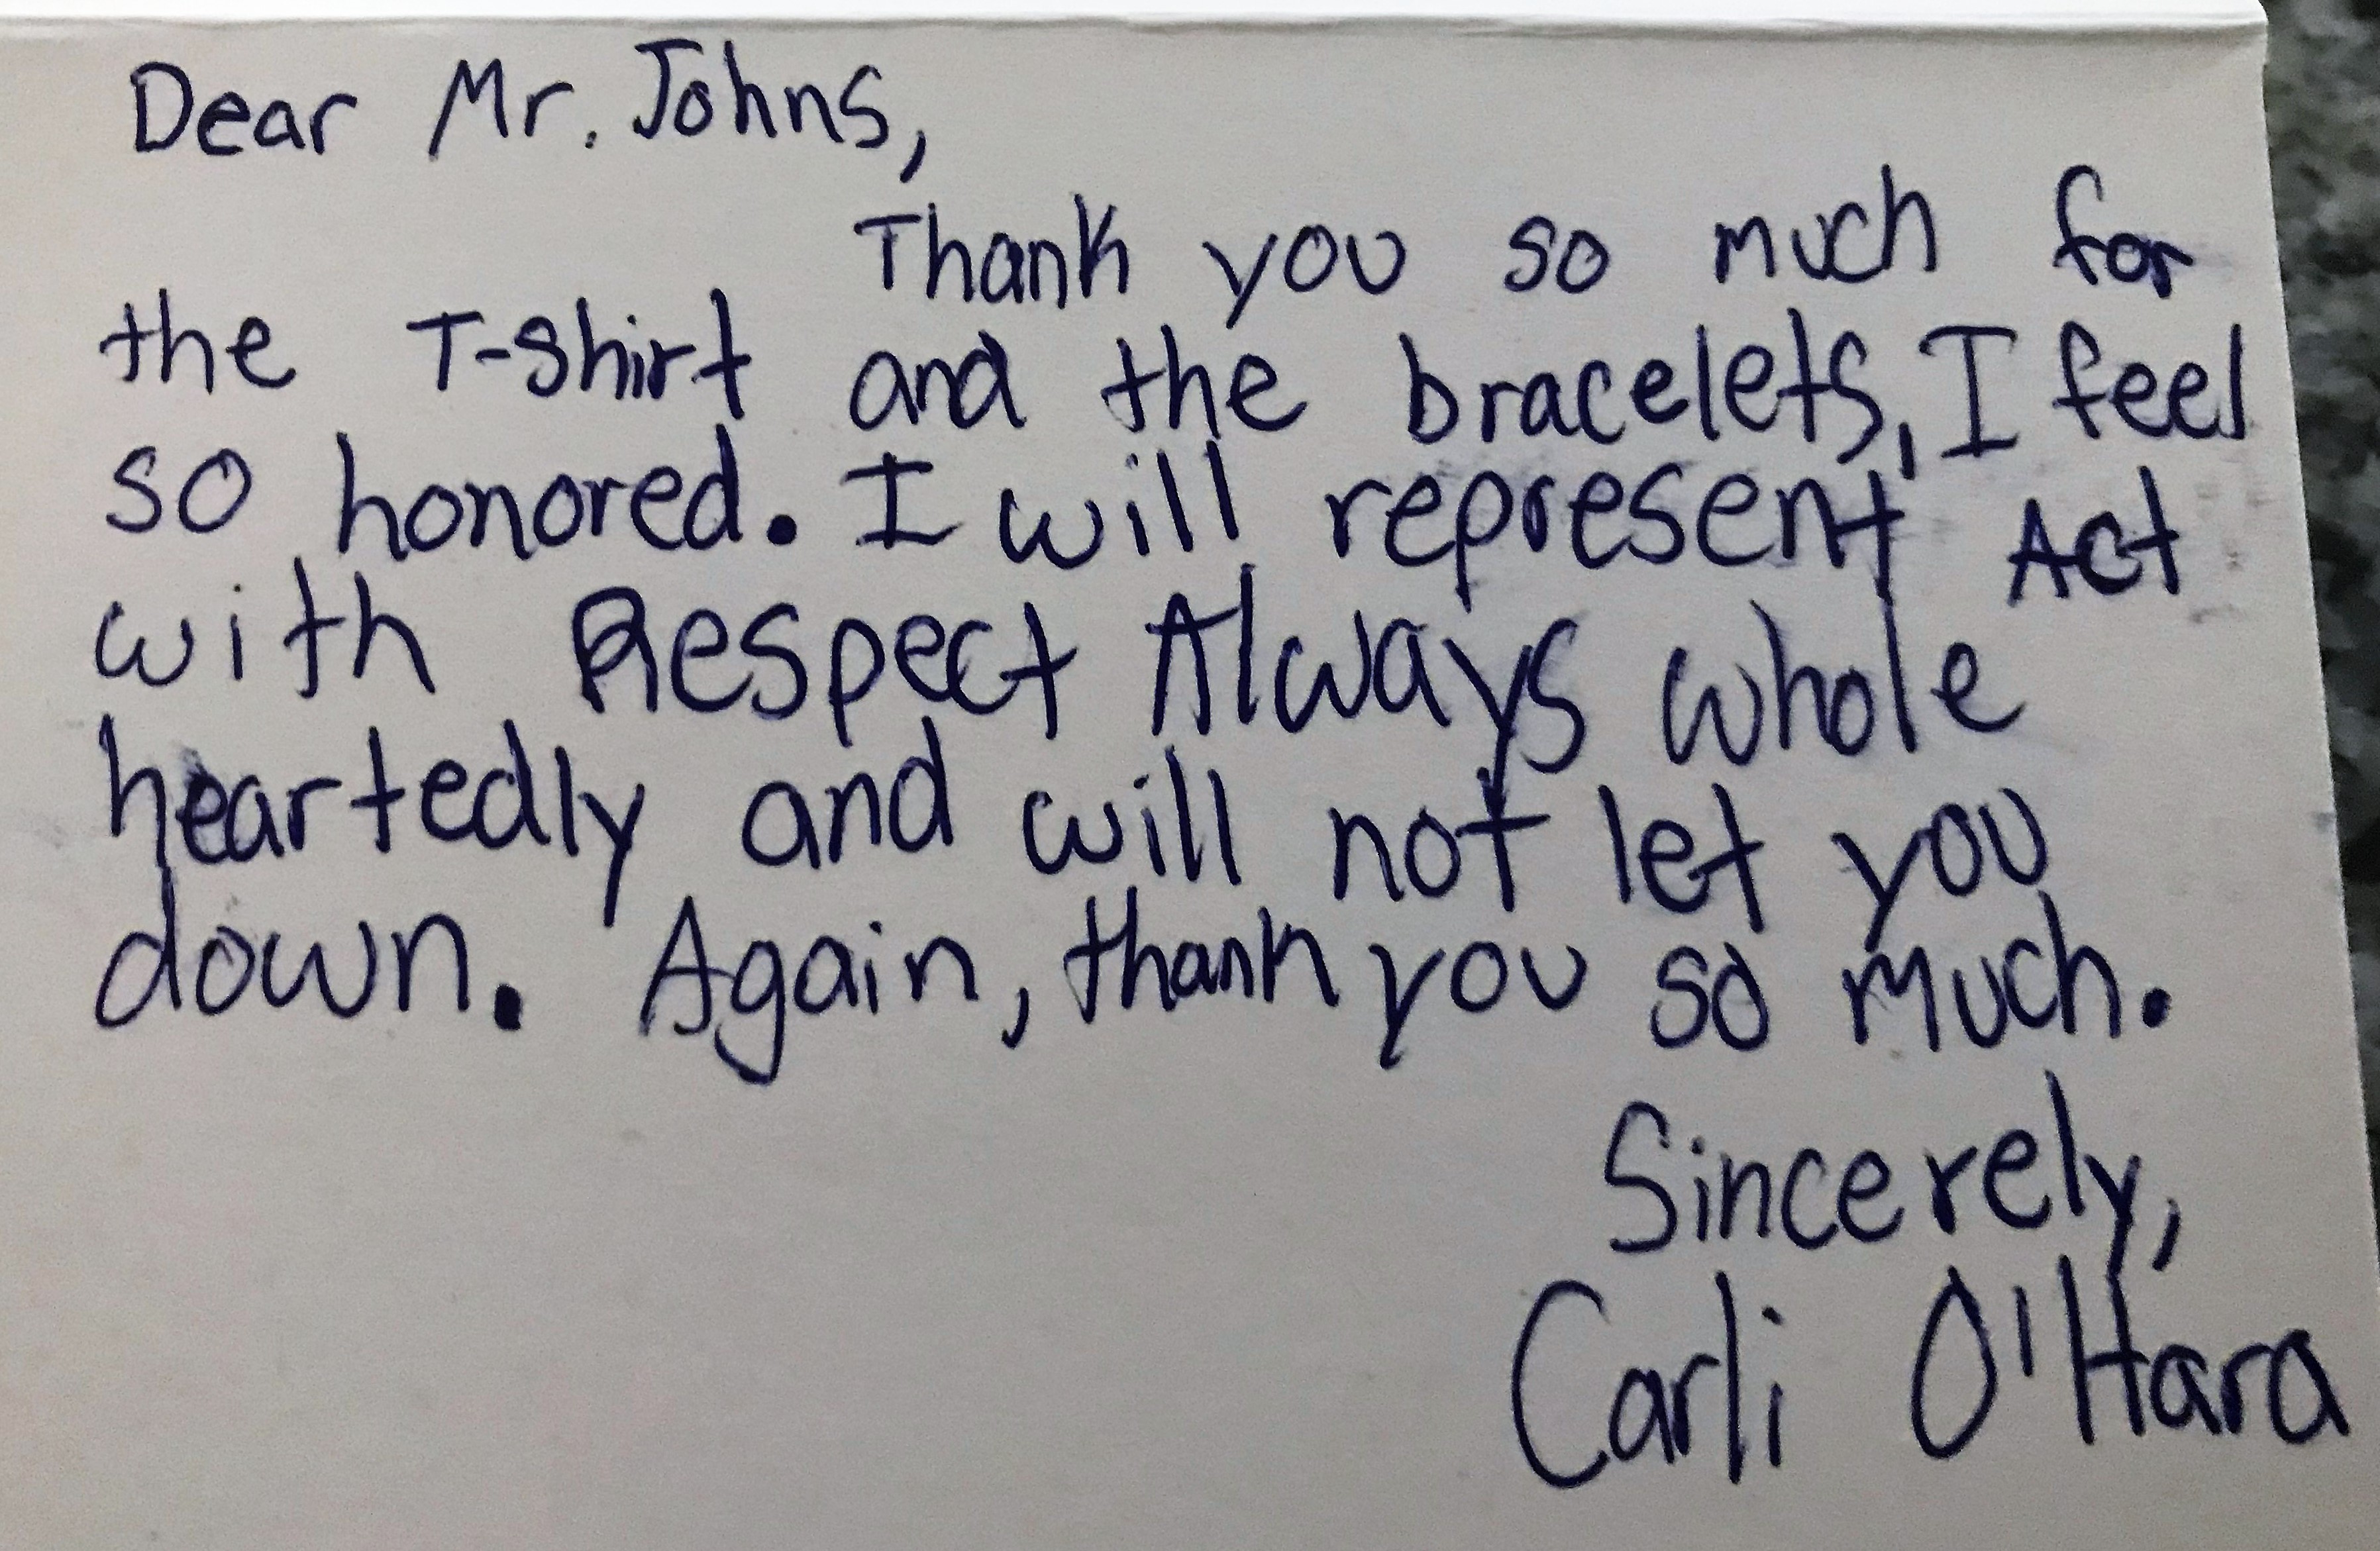 Dear Mr. Johns,
Thank you so much for
the T-shirt and the bracelets, I feel
so honored. I will represent Act
with Respect Always whole
heartedly and will not let you
down. Again, thank you so much.
Sincerely,
Carli O'Hara